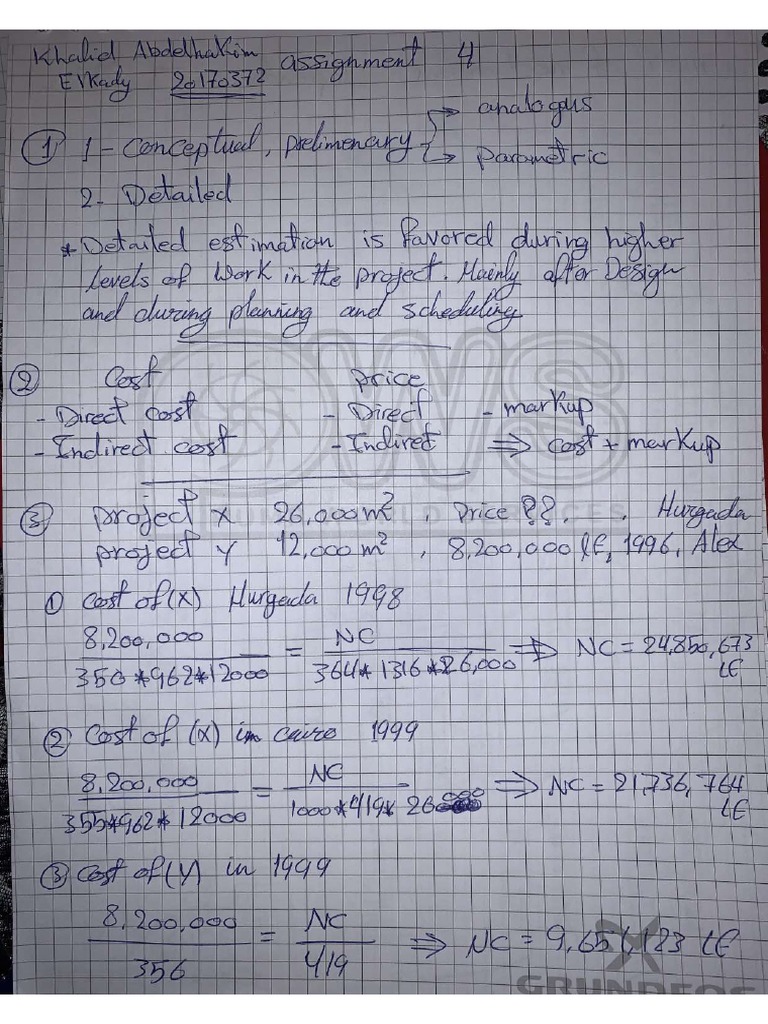 Khalid Abdelhakim assignment 4
Elkady 20170372
① 1- Conceptual, prelimenary → analogus
→ parametric
2- Detailed
* Detailed estimation is favored during higher
levels of work in the project. Mainly after Design
and during planning and scheduling
② Cost price
- Direct cost - Direct - markup
- Indirect cost - Indirect ⇒ cost + markup
③ project X 26,000 m², Price ??, , Hurgada
project Y 12,000 m², 8,200,000 LE, 1996, Alex
① Cost of (X) Hurgada 1998
8,200,000 / 356*962*12000 = NC / 364*1316*26,000 ⇒ NC = 24,850,673 LE
② Cost of (X) in cairo 1999
8,200,000 / 355*962*12000 = NC / 1000*419*26000 ⇒ NC = 21,736,764 LE
③ Cost of (Y) in 1999
8,200,000 / 356 = NC / 419 ⇒ NC = 9,651,123 LE
GRUNDFOS